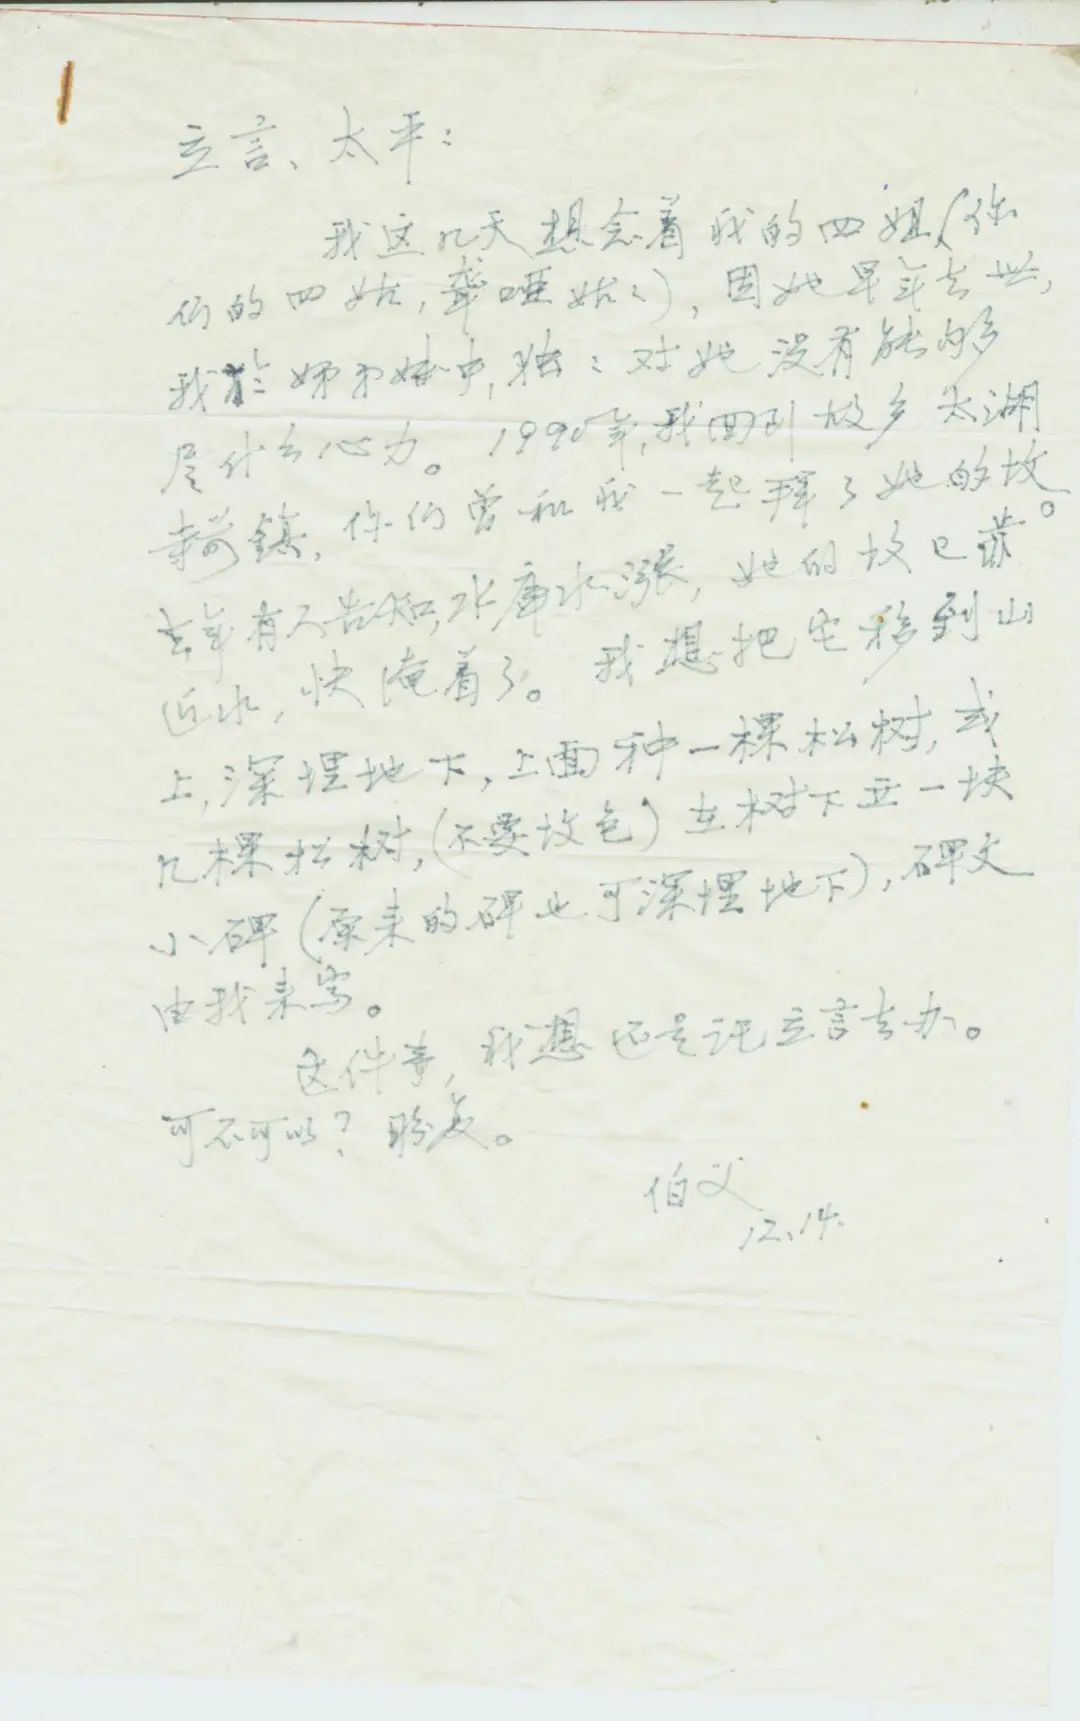 立言、太平：
我这几天想念着我的四姐（你
们的四姑，聋哑姑：），因她早年去世，
我于姊弟妹中，独：对她没有能够
尽什么心力。1990年，我回到故乡太湖
寺前镇，你们曾和我一起拜了她的坟。
去年有人告知，水库水涨，她的坟已靠
近水，快淹着了。我想把它移到山
上，深埋地下，上面种一棵松树，或
几棵松树，（不要坟包）在树下立一块
小碑（原来的碑也可深埋地下），碑文
由我来写。
这件事，我想还是托立言去办。
可不可以？盼复。
伯父
12.14.